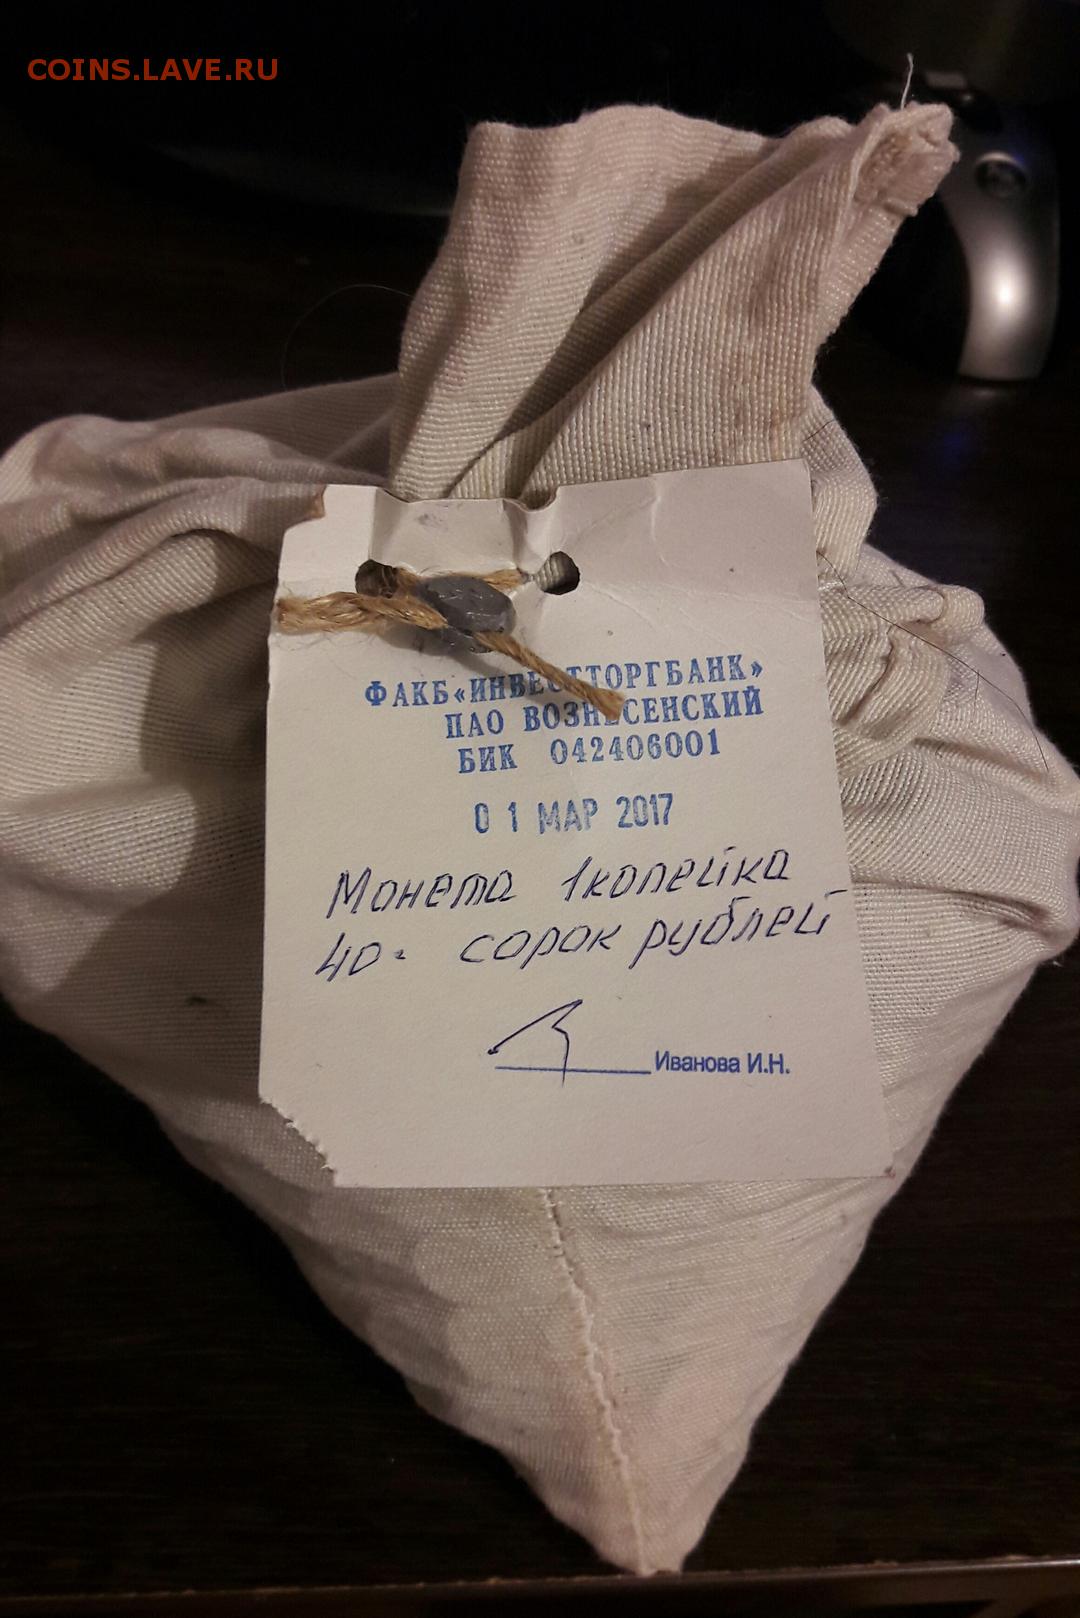 COINS.LAVE.RU
ФАКБ «ИНВЕСТТОРГБАНК»
ПАО ВОЗНЕСЕНСКИЙ
БИК 042406001
01 МАР 2017
Монета 1копейка
40= сорок рублей
Иванова И.Н.